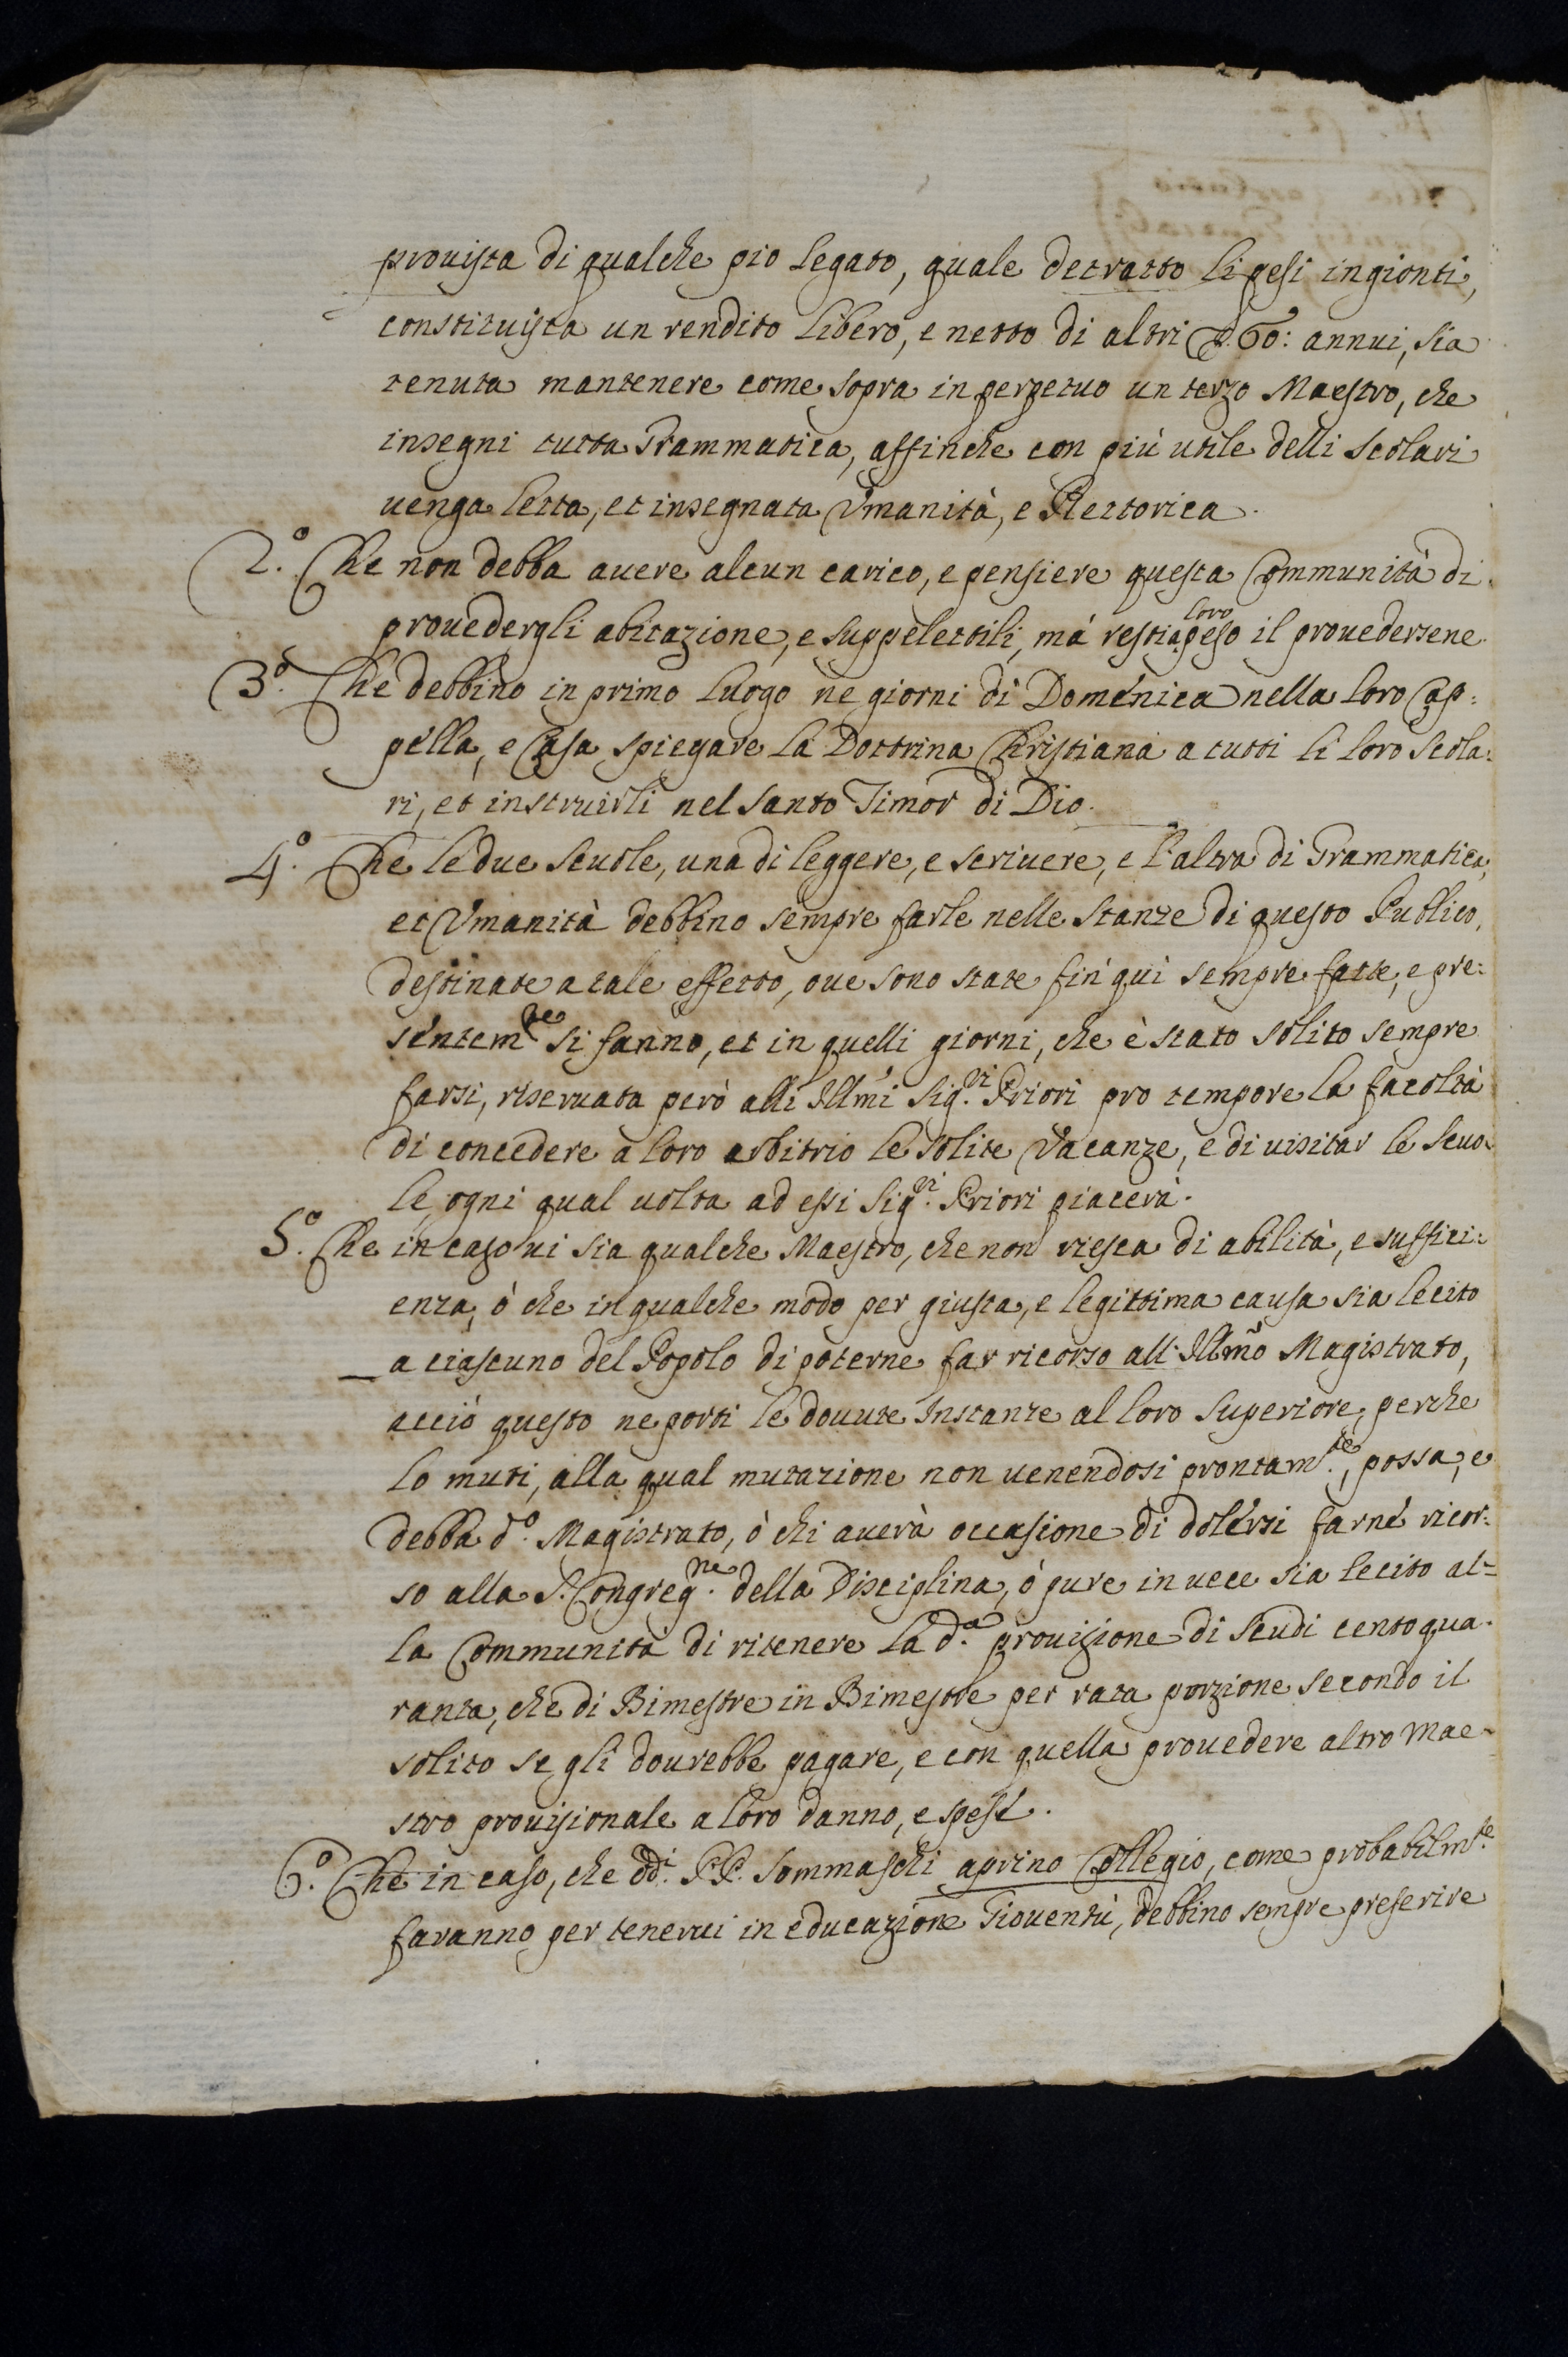 prouista di qualche pio legato, quale detratto li pesi ingionti,
constituisca un rendito libero, e netto di altri ∇. 60: annui, sia
tenuta mantenere come sopra in perpetuo un terzo Maestro, che
insegni tutta Grammatica, affinche con più utile delli Scolari
uenga letta, et insegnata Vmanità, e Rettorica.
2.º Che non debba auere alcun carico, e pensiere questa Communità di
prouedergli abitazione, e suppelettili, mà restia loro peso il prouedersene.
3.º Che debbino in primo luogo ne giorni di Domenica nella loro Cap:
pella, e Casa spiegare la Dottrina Christiana a tutti li loro Scola:
ri, et instruirli nel Santo Timor di Dio.
4.º Che le due Scuole, una di leggere, e scriuere, e l'altra di Grammatica,
et Vmanità debbino sempre farle nelle Stanze di questo Publico,
destinate a tale effetto, oue sono state fin qui sempre fatte, e pre:
sentem.te si fanno, et in quelli giorni, che è stato solito sempre
farsi, riseruata però alli Illmi Sig.ri Priori pro tempore la facoltà
di concedere a loro arbitrio le solite Vacanze, e di uisitar le Scuo:
le ogni qual uolta ad essi Sig.ri Priori piacerà.
5.º Che in caso ui sia qualche Maestro, che non riesca di abilità, e suffici:
enza, ò che in qualche modo per giusta, e legittima causa sia lecito
a ciascuno del Popolo di poterne far ricorso all'Illmo Magistrato,
acciò questo ne porti le douute Instanze al loro Superiore, perche
lo muti, alla qual mutazione non uenendosi prontam.te, possa, e
debba d.º Magistrato, ò chi auerà occasione di dolersi farne ricor:
so alla S. Congreg.ne della Disciplina, ò pure in uece sia lecito al=
la Communità di ritenere la d.a prouisione di Scudi cento qua:
ranta, che di Bimestre in Bimestre per rata porzione secondo il
solito se gli dourebbe pagare, e con quella prouedere altro Mae:
stro prouisionale a loro danno, e spese.
6.º Che in caso, che dd.i PP. Sommaschi aprino Collegio, come probabilm.te
faranno per tenerui in educazione Giouentù, debbino sempre preferire